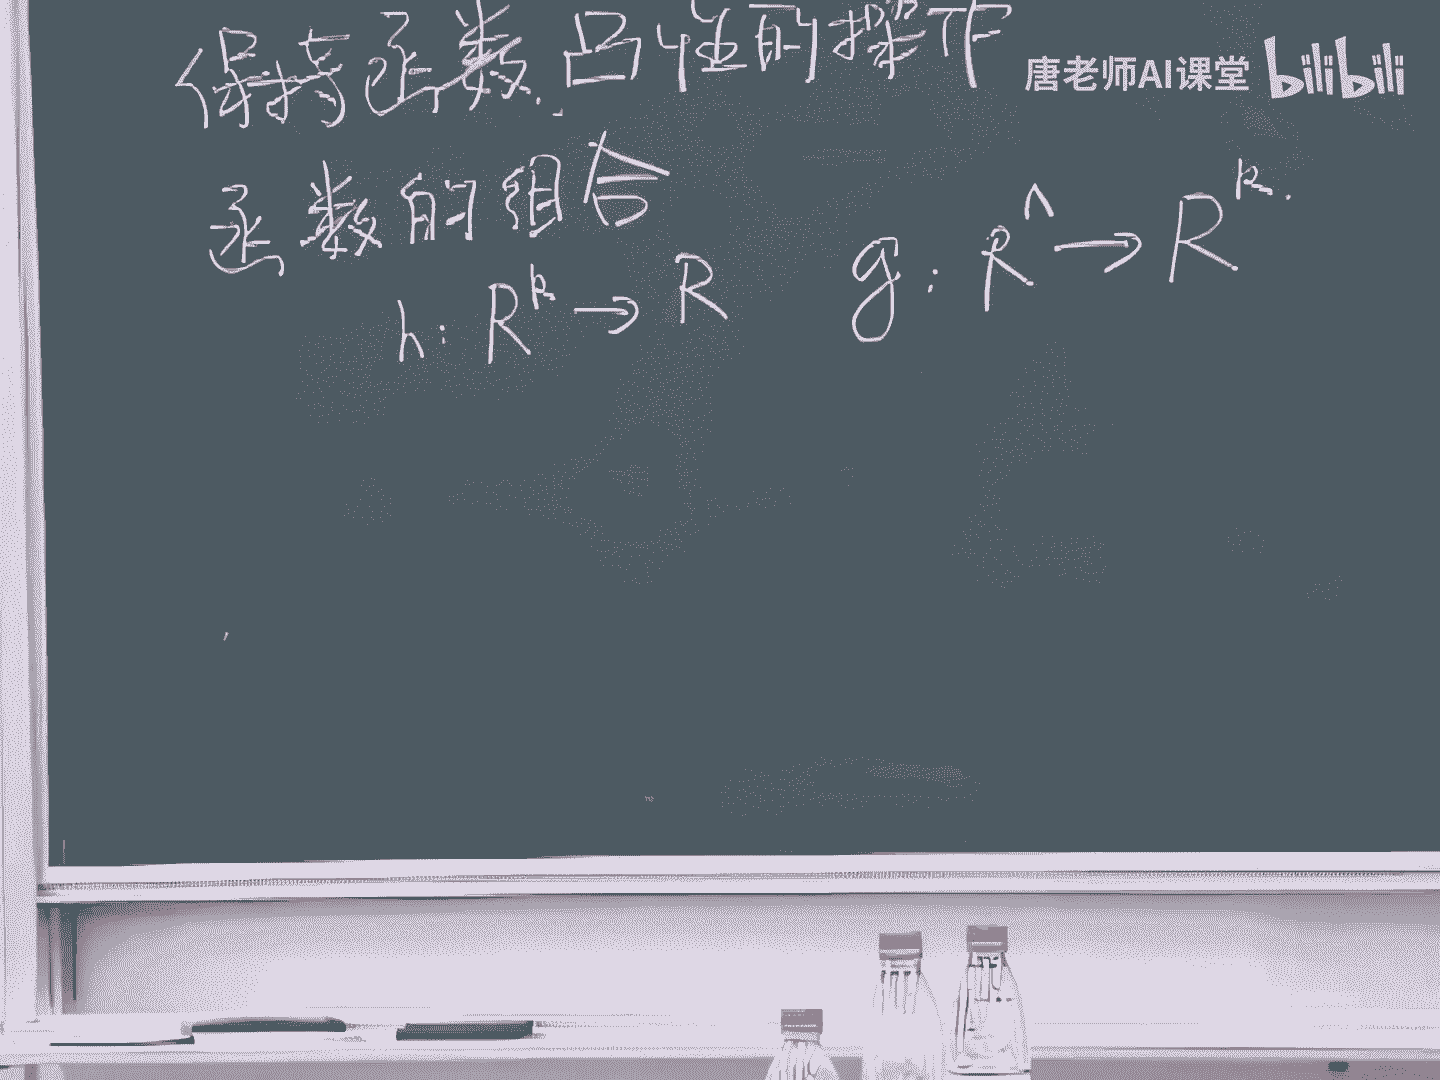 保持函数凸性的操作
唐老师AI课堂 bilibili
函数的组合
h: R^k → R
g: R^n → R^k.